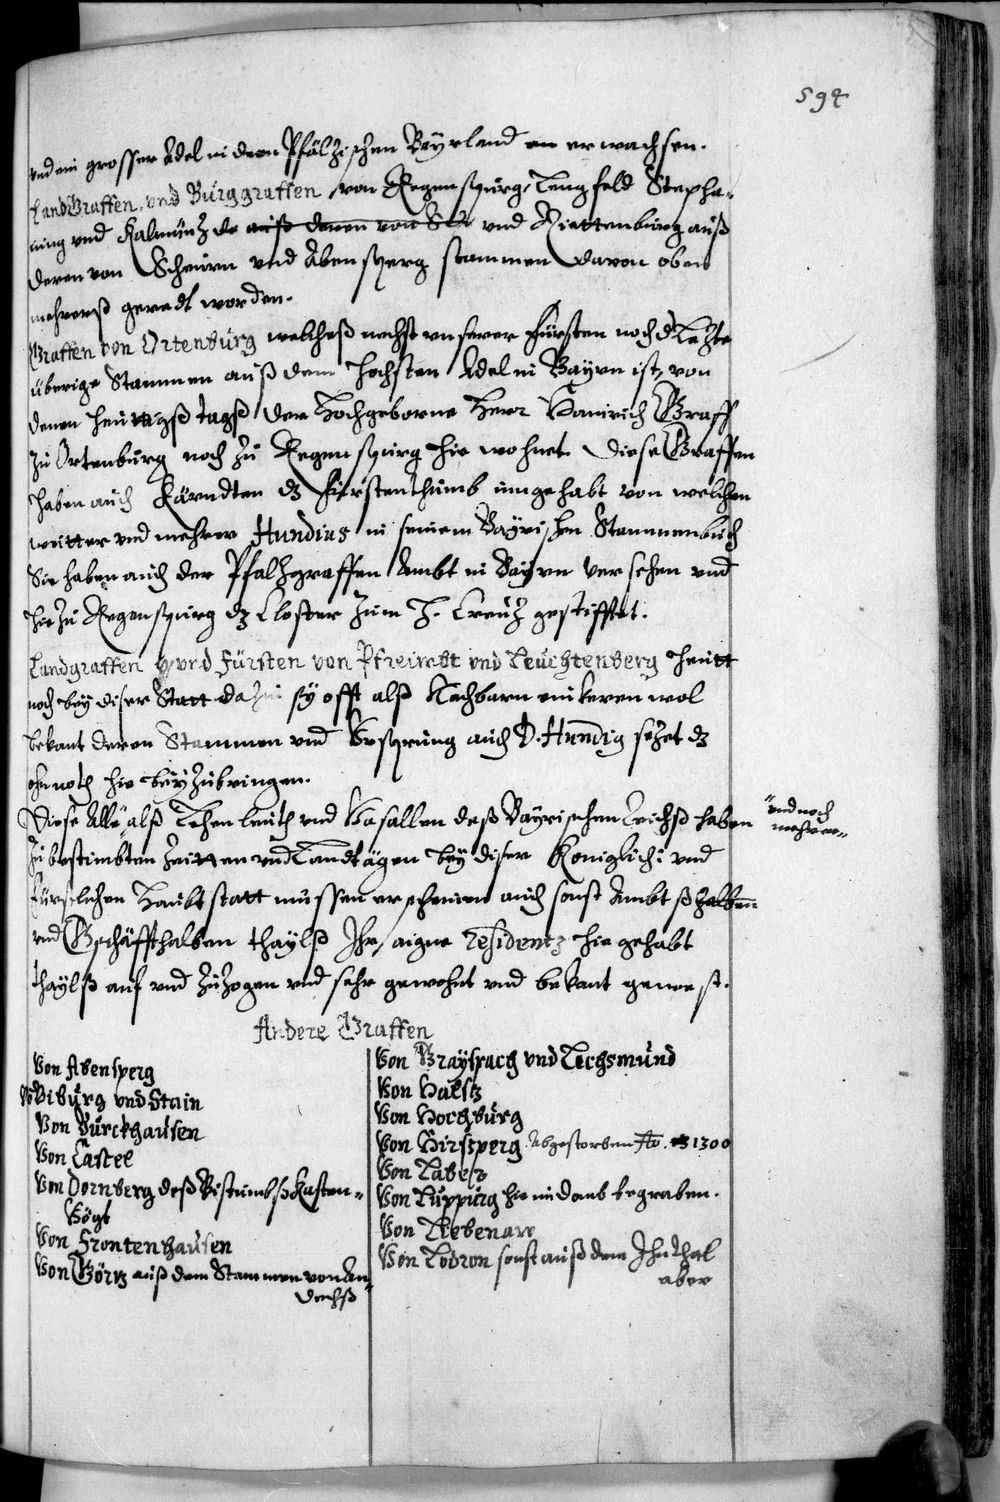 594
und ein grosser Adel in dem Pfälzischen Bayrland erwachsen.
LandGraffen, und Burggraffen von Regenspurg, Lengfeld Stepha-
ning und Kalmüntz de auß denen von Sch und Riettenburg auß
deren von Scheurn und Abensperg stammen davon oben
mehrerß geredt worden.
Graffen von Ortenburg welcheß nechst unserer Fürsten noch d Letzte
überige Stammen auß dem Hochsten Adel in Bayrn ist, von
denen heuttigß tagß der Hochgeborne Herr Hainrich Graff
zu Ortenburg noch zu Regenspurg hie wohnet. Diese Graffen
haben auch Kärndten dz Fürstenthumb inngehabt von welchen
weitter und mehrer Hundius in seinem Bayrischen Stammenbuch
Sie haben auch der Pfaltzgraffen Ambt in Bayrn versehen und
hie zu Regenspurg dz Closter zum H. Creutz gestifftet.
Landgraffen und Fürsten von Pfreimbt und Leuchtenberg heutt
noch bey diser Statt dahin sy offt alß Nachbarn einkeren wol
bekant deren Stammen und Ursprung auch D. Hundig setzet dz
ohnnoth hie beyzubringen.
Diese Alle alß Lehenleuth und Vasallen deß Bayrischen Reichß haben
und noch
mehrer
zu bestimbten Zeitten und Landtägen bey diser Koniglich: und
fürstlichen Haubtstatt müssen erscheinen auch sonst Ambtßhalben
und Gschäffthalben thaylß Ihr aigne residentz hie gehabt
thaylß auf und zuzogen und sehr gewohnt und bekant gewest.
Andere Graffen
Von Abensperg
Vo Biburg und Stain
Von Burckhausen
Von Castel
Von Dornberg deß Bistumbß Kasten-
Vögt
Von Frontenhausen
Von Görtz auß dem Stammen von An-
dechß
Von Grayspach und Lechsmund
Von Halß
Von Hochburg
Von Hirsperg. Abgestorben Ao. 1300
Von Laber
Von Luppurg hie im Domb begraben.
Von Liebenaw
Von Lodron sonst auß dem Ihnthal
aber